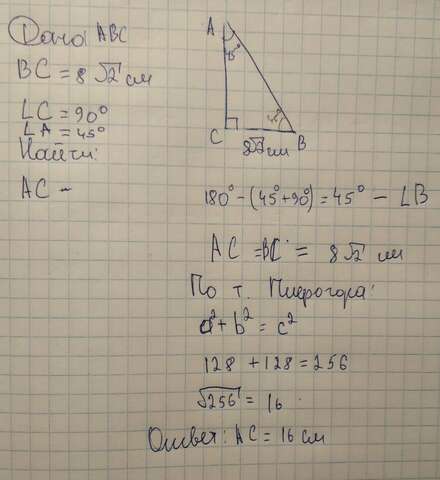 Дано ABC
BC = 8√2 см
∠C = 90°
∠A = 45°
Найти:
AC -
A
45°
45°
C
B
8√2 см
180° - (45° + 90°) = 45° - ∠B
AC = BC = 8√2 см
По т. Пифагора:
a² + b² = c²
128 + 128 = 256
√256 = 16
Ответ: AC = 16 см